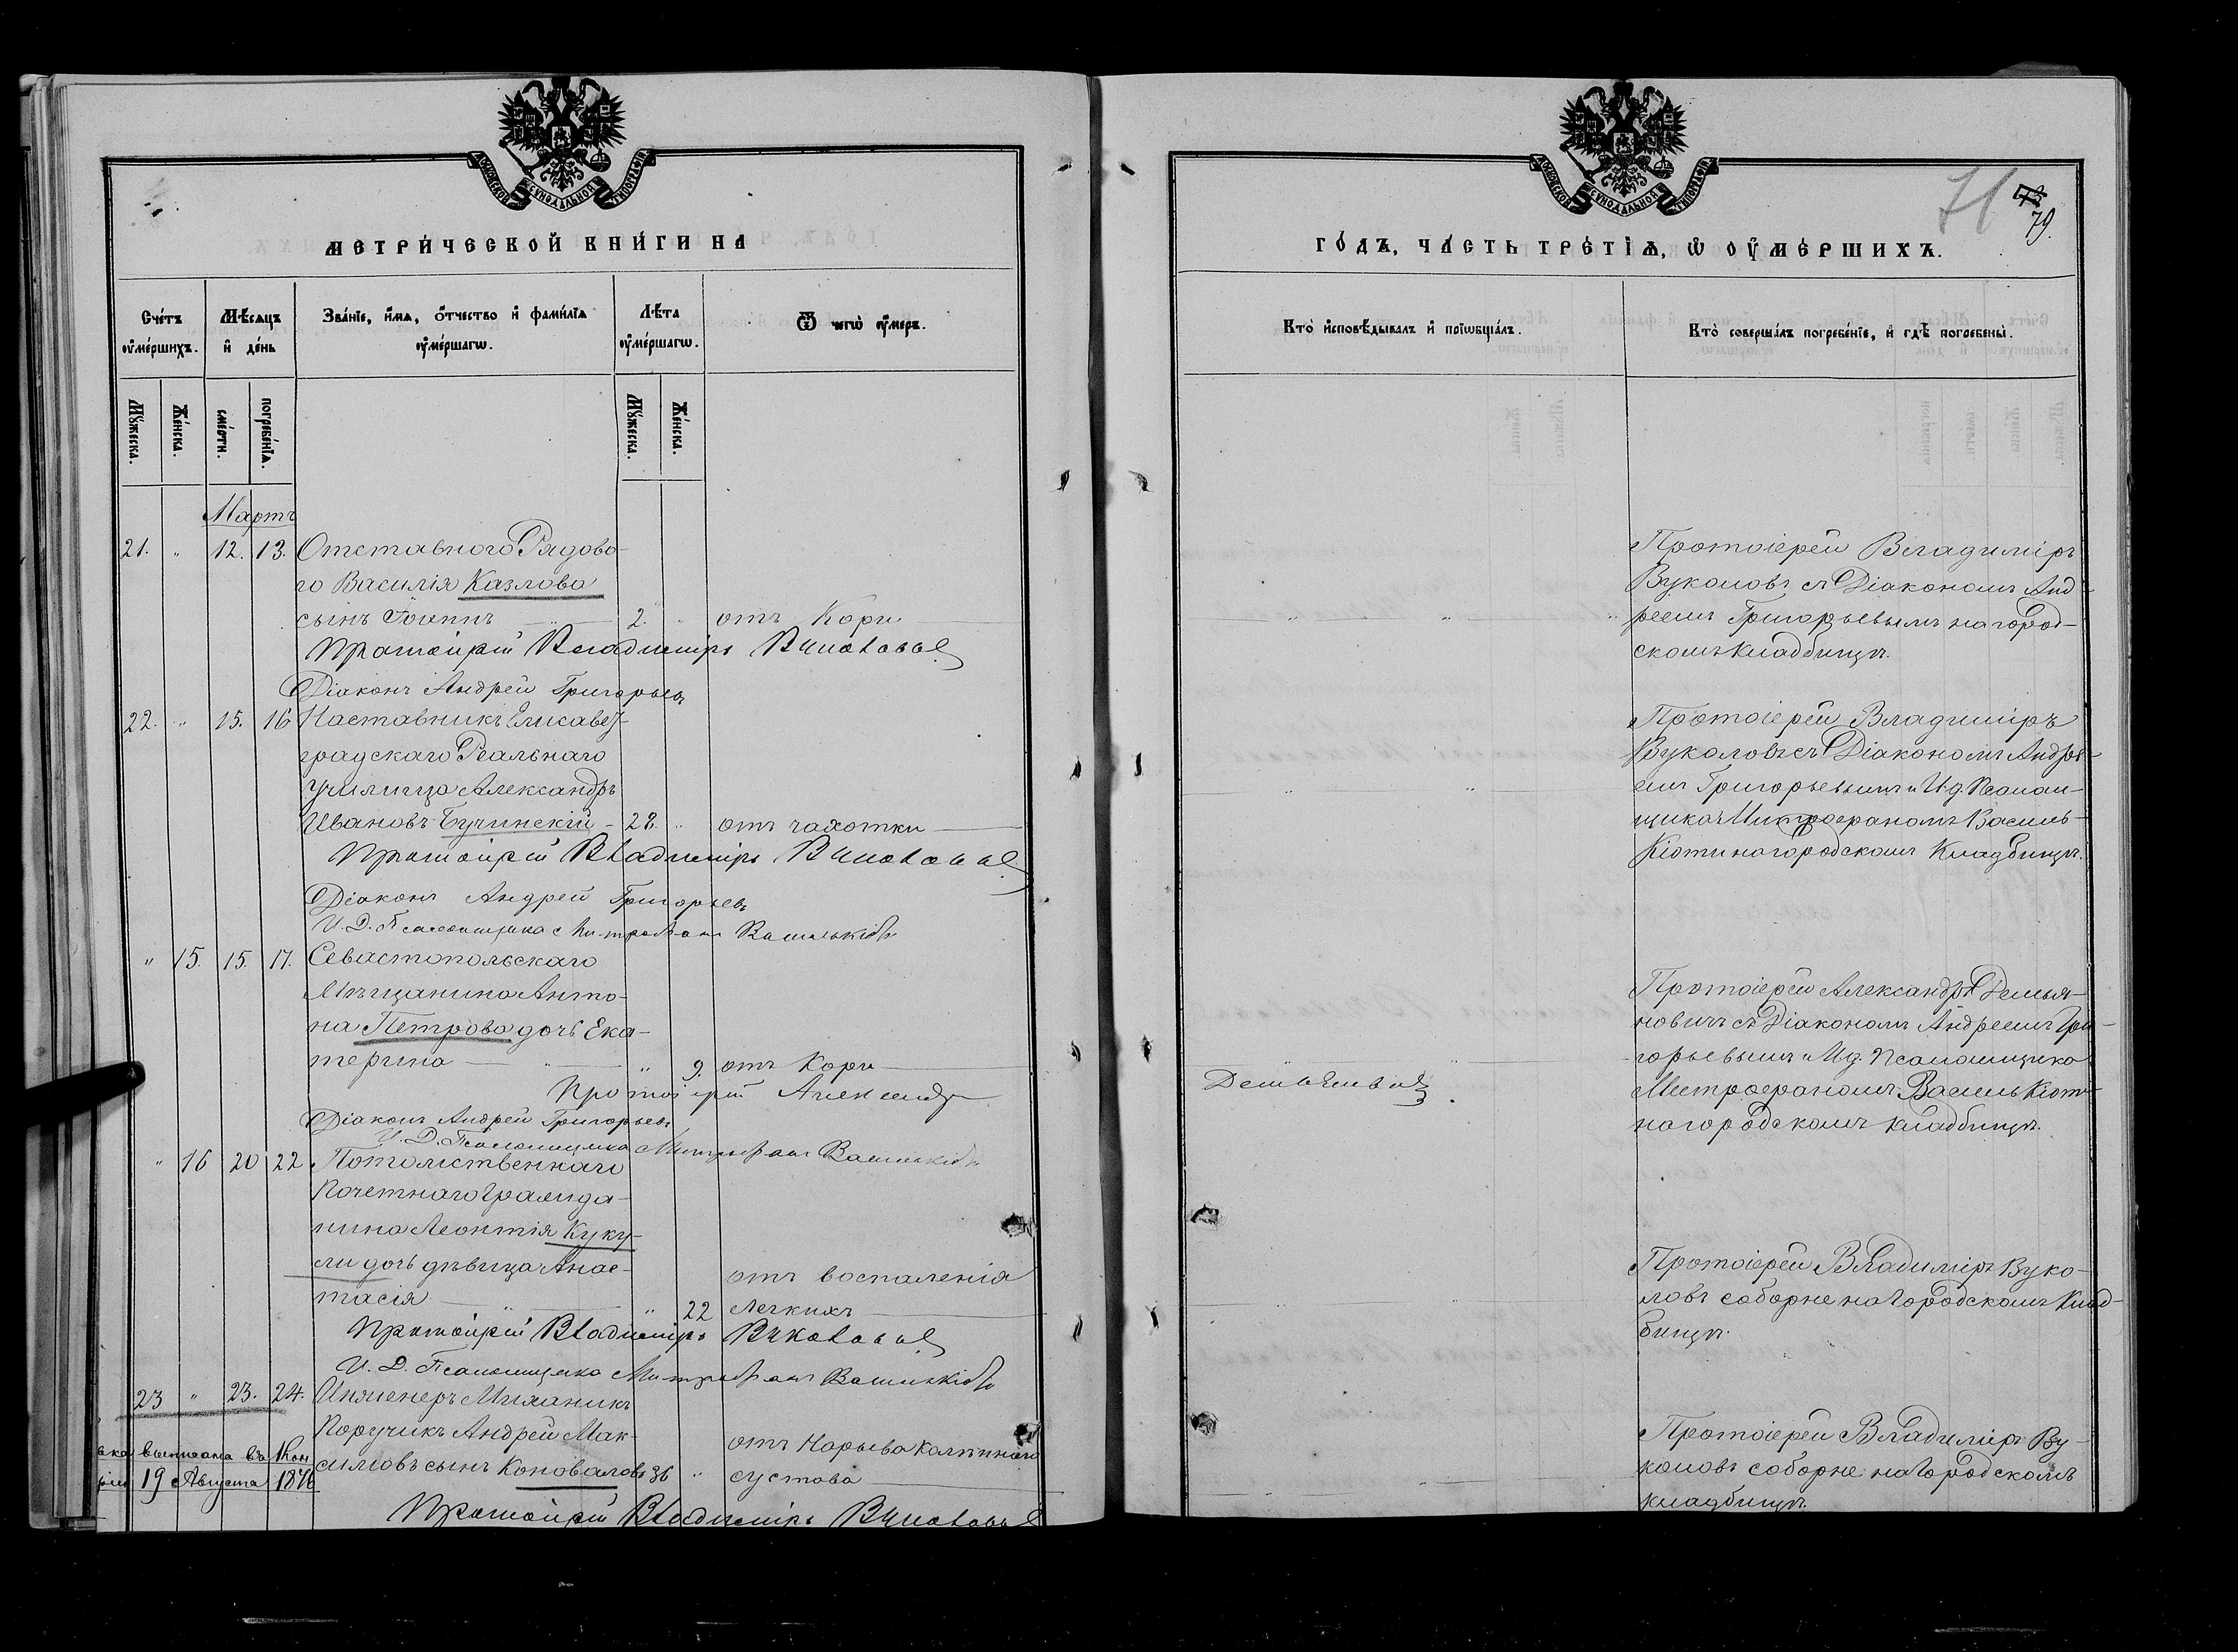 МОСКОВСКОЙ СѴНОДАЛЬНОЙ ТИПОГРАФІИ
МЕТРИ́ЧЕСКОЙ КНИ́ГИ НА
Сче́тъ ᲂу҆ме́ршихъ.
Мѣ́сяцъ и҆ де́нь
Зва́нїе, и҆́мѧ, ѻ҆́тчество и҆ фами́лїѧ ᲂу҆ме́ршагѡ.
Лѣ́та ᲂу҆ме́ршагѡ.
Ѿ чегѡ̀ ᲂу҆́меръ.
Мꙋ́жеска.
Же́нска.
сме́рти.
погребе́нїѧ.
Мꙋ́жеска.
Же́нска.
Мартъ
21. " 12. 13. Отставного Рядово-
го Василія Казлова
сынъ Іоаннъ — 2. " отъ Кори
Протоіерей Владиміръ Вуколовъ
Діаконъ Андрей Григорьевъ
22. " 15. 16 Наставникъ Елисавет-
градскаго Реальнаго
Училища Александръ
Ивановъ Бучинскій - 28. " отъ чахотки
Протоіерей Владиміръ Вуколовъ
Діаконъ Андрей Григорьевъ
И. Д. Псаломщика Митрофанъ Васильківъ
" 15. 15. 17. Севастопольскаго
Мѣщанина Анто-
на Петрова дочь Ека-
терина — " 9. отъ Кори
Протоіерей Александръ
Діаконъ Андрей Григорьевъ
И. Д. Псаломщика Митрофанъ Васильківъ
" 16 20 22 Потомственнаго
Почетнаго Гражда-
нина Леонтія Куку-
ли дочь дѣвица Анас-
тасія — " 22 отъ воспаленія
легкихъ
Протоіерей Владиміръ Вуколовъ
И. Д. Псаломщика Митрофанъ Васильківъ
23 " 23. 24. Инженеръ Механикъ
Поручикъ Андрей Мак-
симовъ сынъ Коноваловъ 36 " отъ Нарыва Колѣннаго
сустава
выписана въ Кон
19 Августа 1876
Протоіерей Владиміръ Вуколовъ
МОСКОВСКОЙ СѴНОДАЛЬНОЙ ТИПОГРАФІИ
71
79.
ГО́ДЪ, ЧА́СТЬ ТРЕ́ТЇѦ, Ѡ҆ ОУ҆МЕ́РШИХЪ.
Кто̀ и҆сповѣ́дывалъ и҆ прїѡбща́лъ.
Кто̀ соверша́лъ погребе́нїе, и҆ гдѣ̀ погребены̀.
Протоіерей Владиміръ
Вуколовъ съ Діакономъ Анд-
реемъ Григорьевымъ на город-
скомъ кладбищѣ.
Протоіерей Владиміръ
Вуколовъ съ Діакономъ Андре-
емъ Григорьевымъ и И. д. Псалом-
щика Митрофаномъ Василь-
кіотинагородскомъ Кладбищѣ.
Демьяновичъ
Протоіерей Александръ Демья-
новичъ съ Діакономъ Андреемъ Гри-
горьевымъ и И. д. Псаломщика
Митрофаномъ Василькіот-
на городскомъ кладбищѣ.
Протоіерей Владиміръ Вуко-
ловъ соборне на Городскомъ Клад-
бищѣ.
Протоіерей Владиміръ Ву-
коловъ соборне на Городскомъ
кладбищѣ.